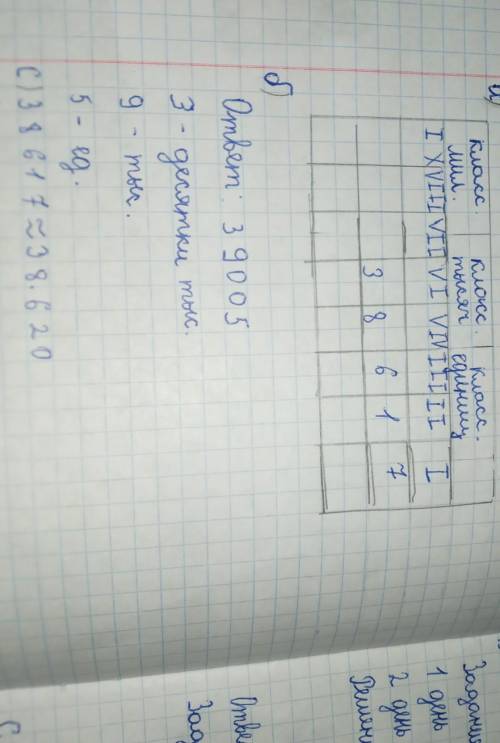 а)
класс. мил. класс. тысяч класс. единиц
IX VIII VII VI V IV III II I
3 8 6 1 7
б)
Ответ: 39005
3 - десятки тыс.
9 - тыс.
5 - ед.
С) 38617 ≈ 38.620
Задание
1 день
2 день
Решени
Отве
Зад
С